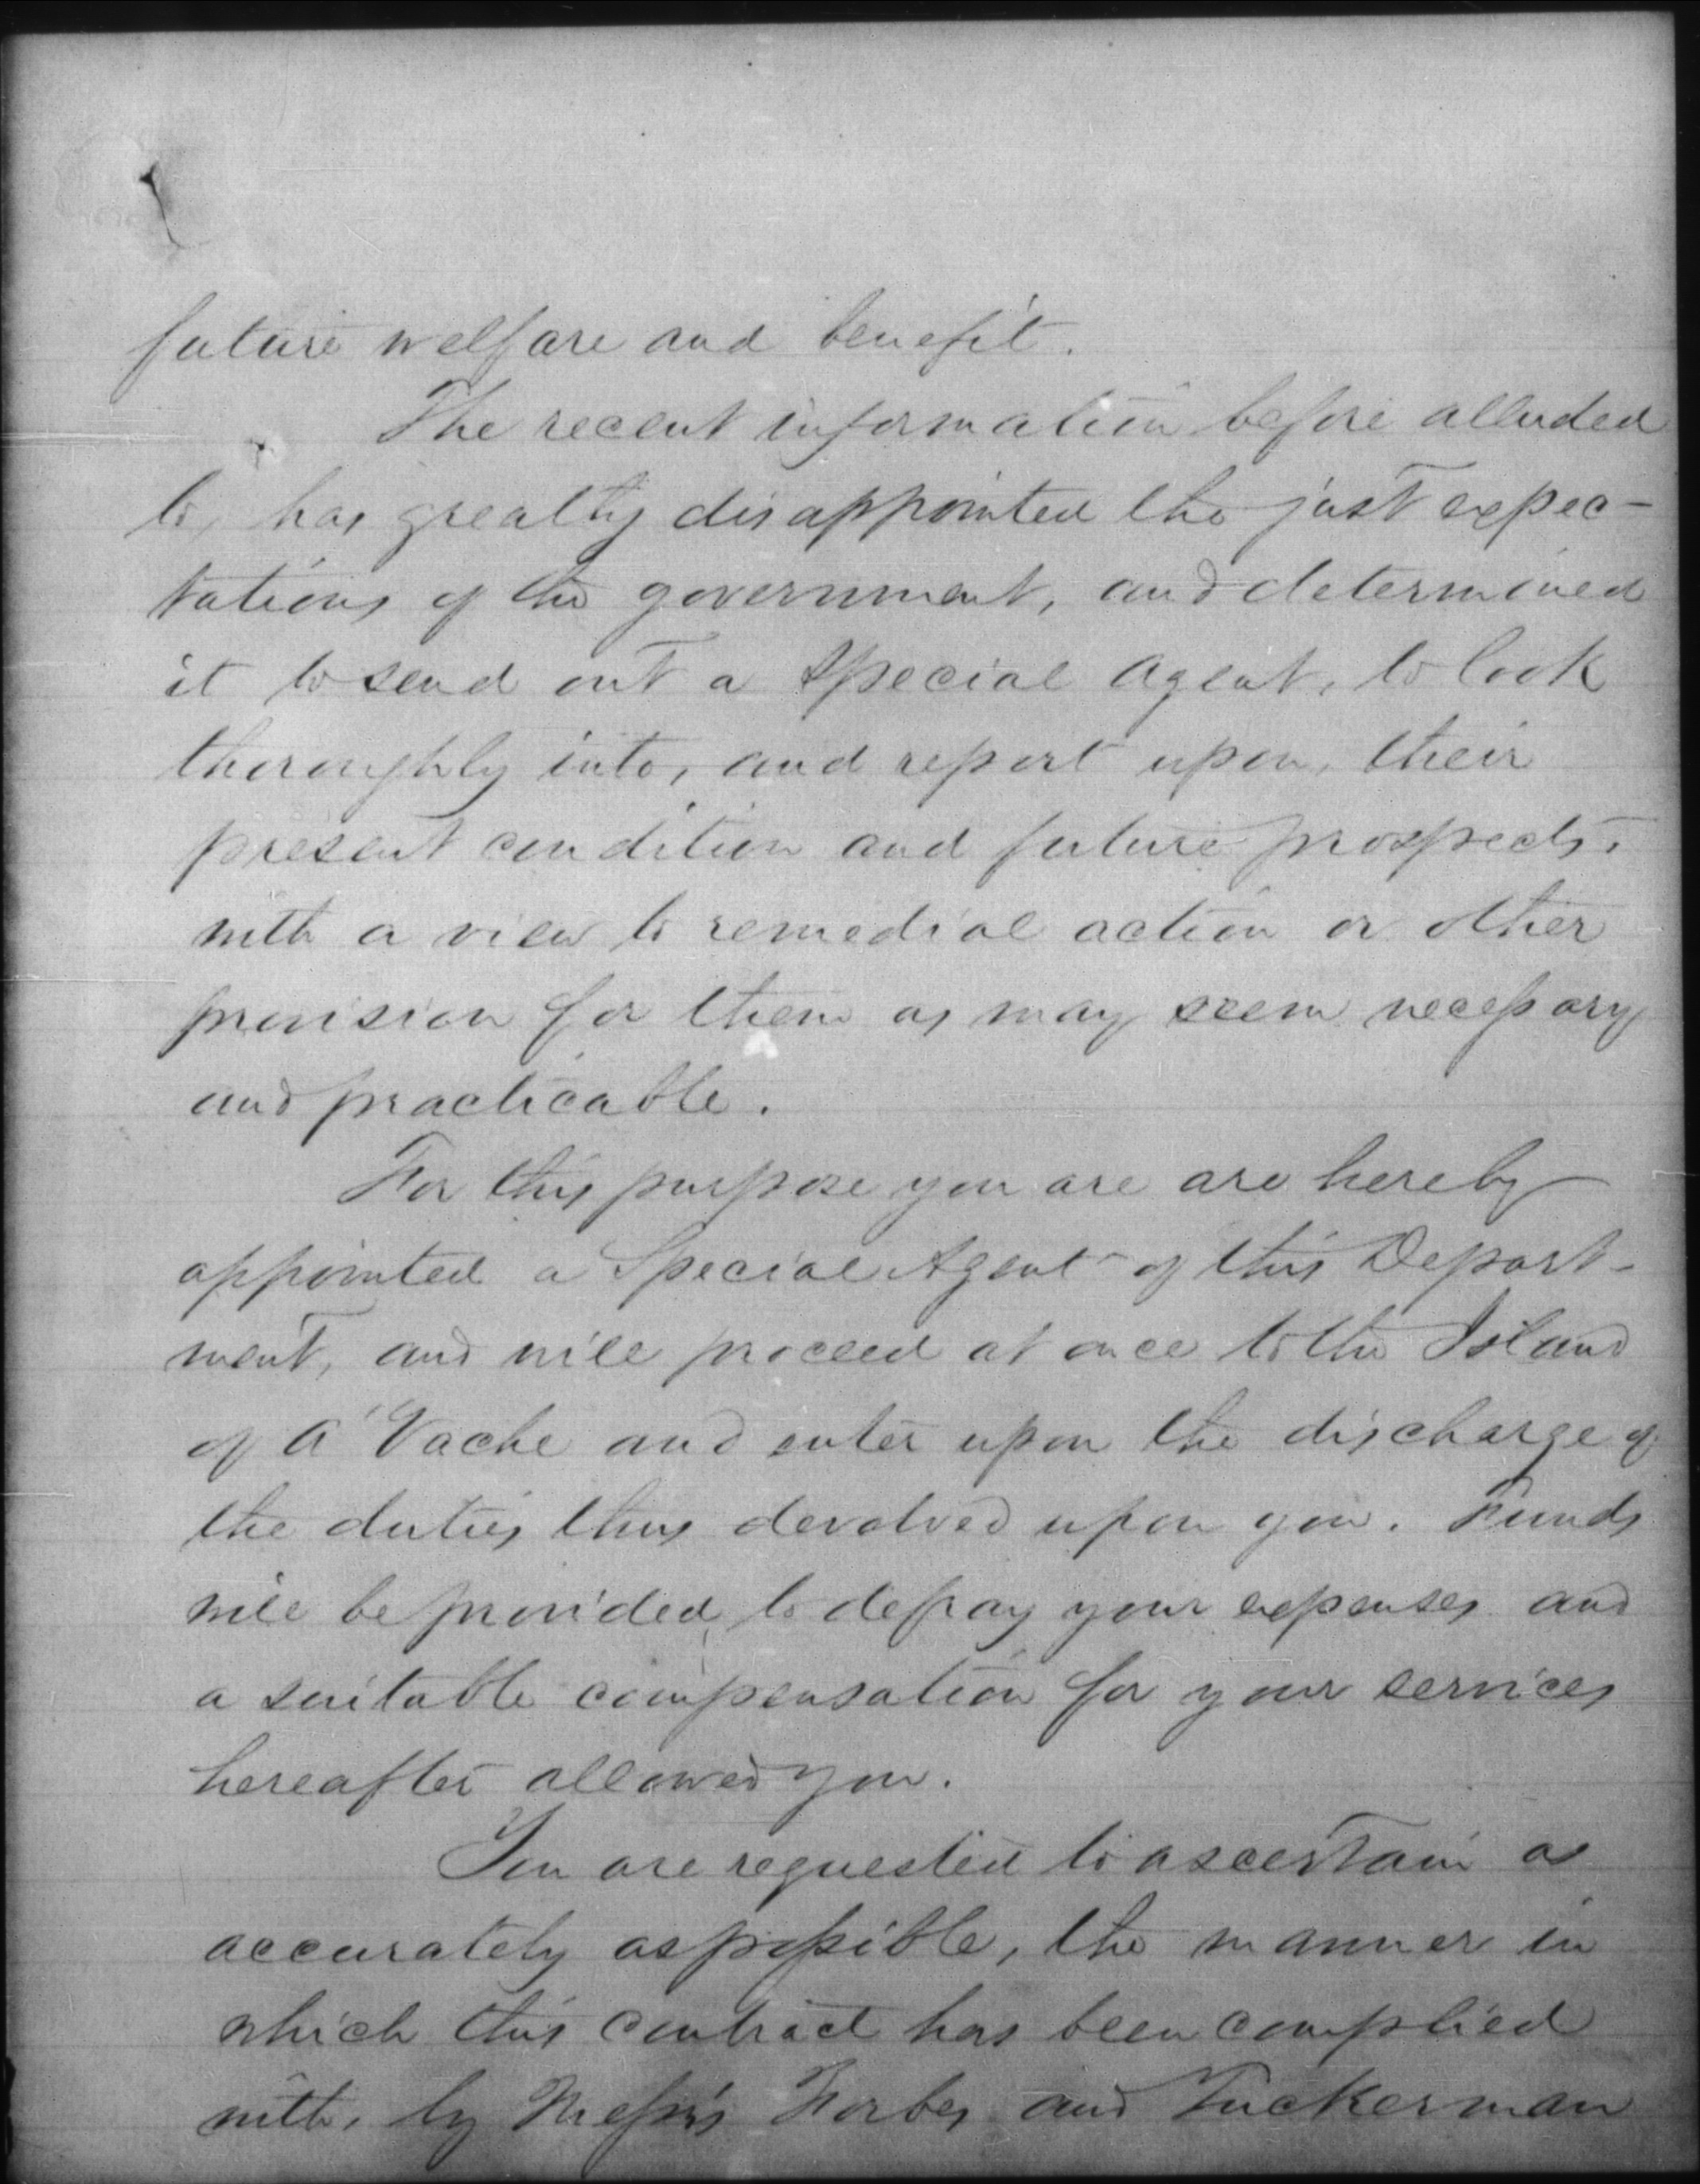 future welfare and benefit.
The recent information before alluded
to, has greatly disappointed the just expec-
tations of the government, and determined
it to send out a special agent, to look
thoroughly into, and report upon, their
present condition and future prospects,
with a view to remedial action or other
provision for them as may seem necessary
and practicable.
For this purpose you are are hereby
appointed a Special Agent of this Depart-
ment, and will proceed at once to the Island
of A'Vache and enter upon the discharge of
the duties thus devolved upon you. Funds
will be provided to defray your expenses and
a suitable compensation for your services
hereafter allowed you.
You are requested to ascertain as
accurately as possible, the manner in
which this contract has been complied
with, by Messrs Forbes and Tuckerman